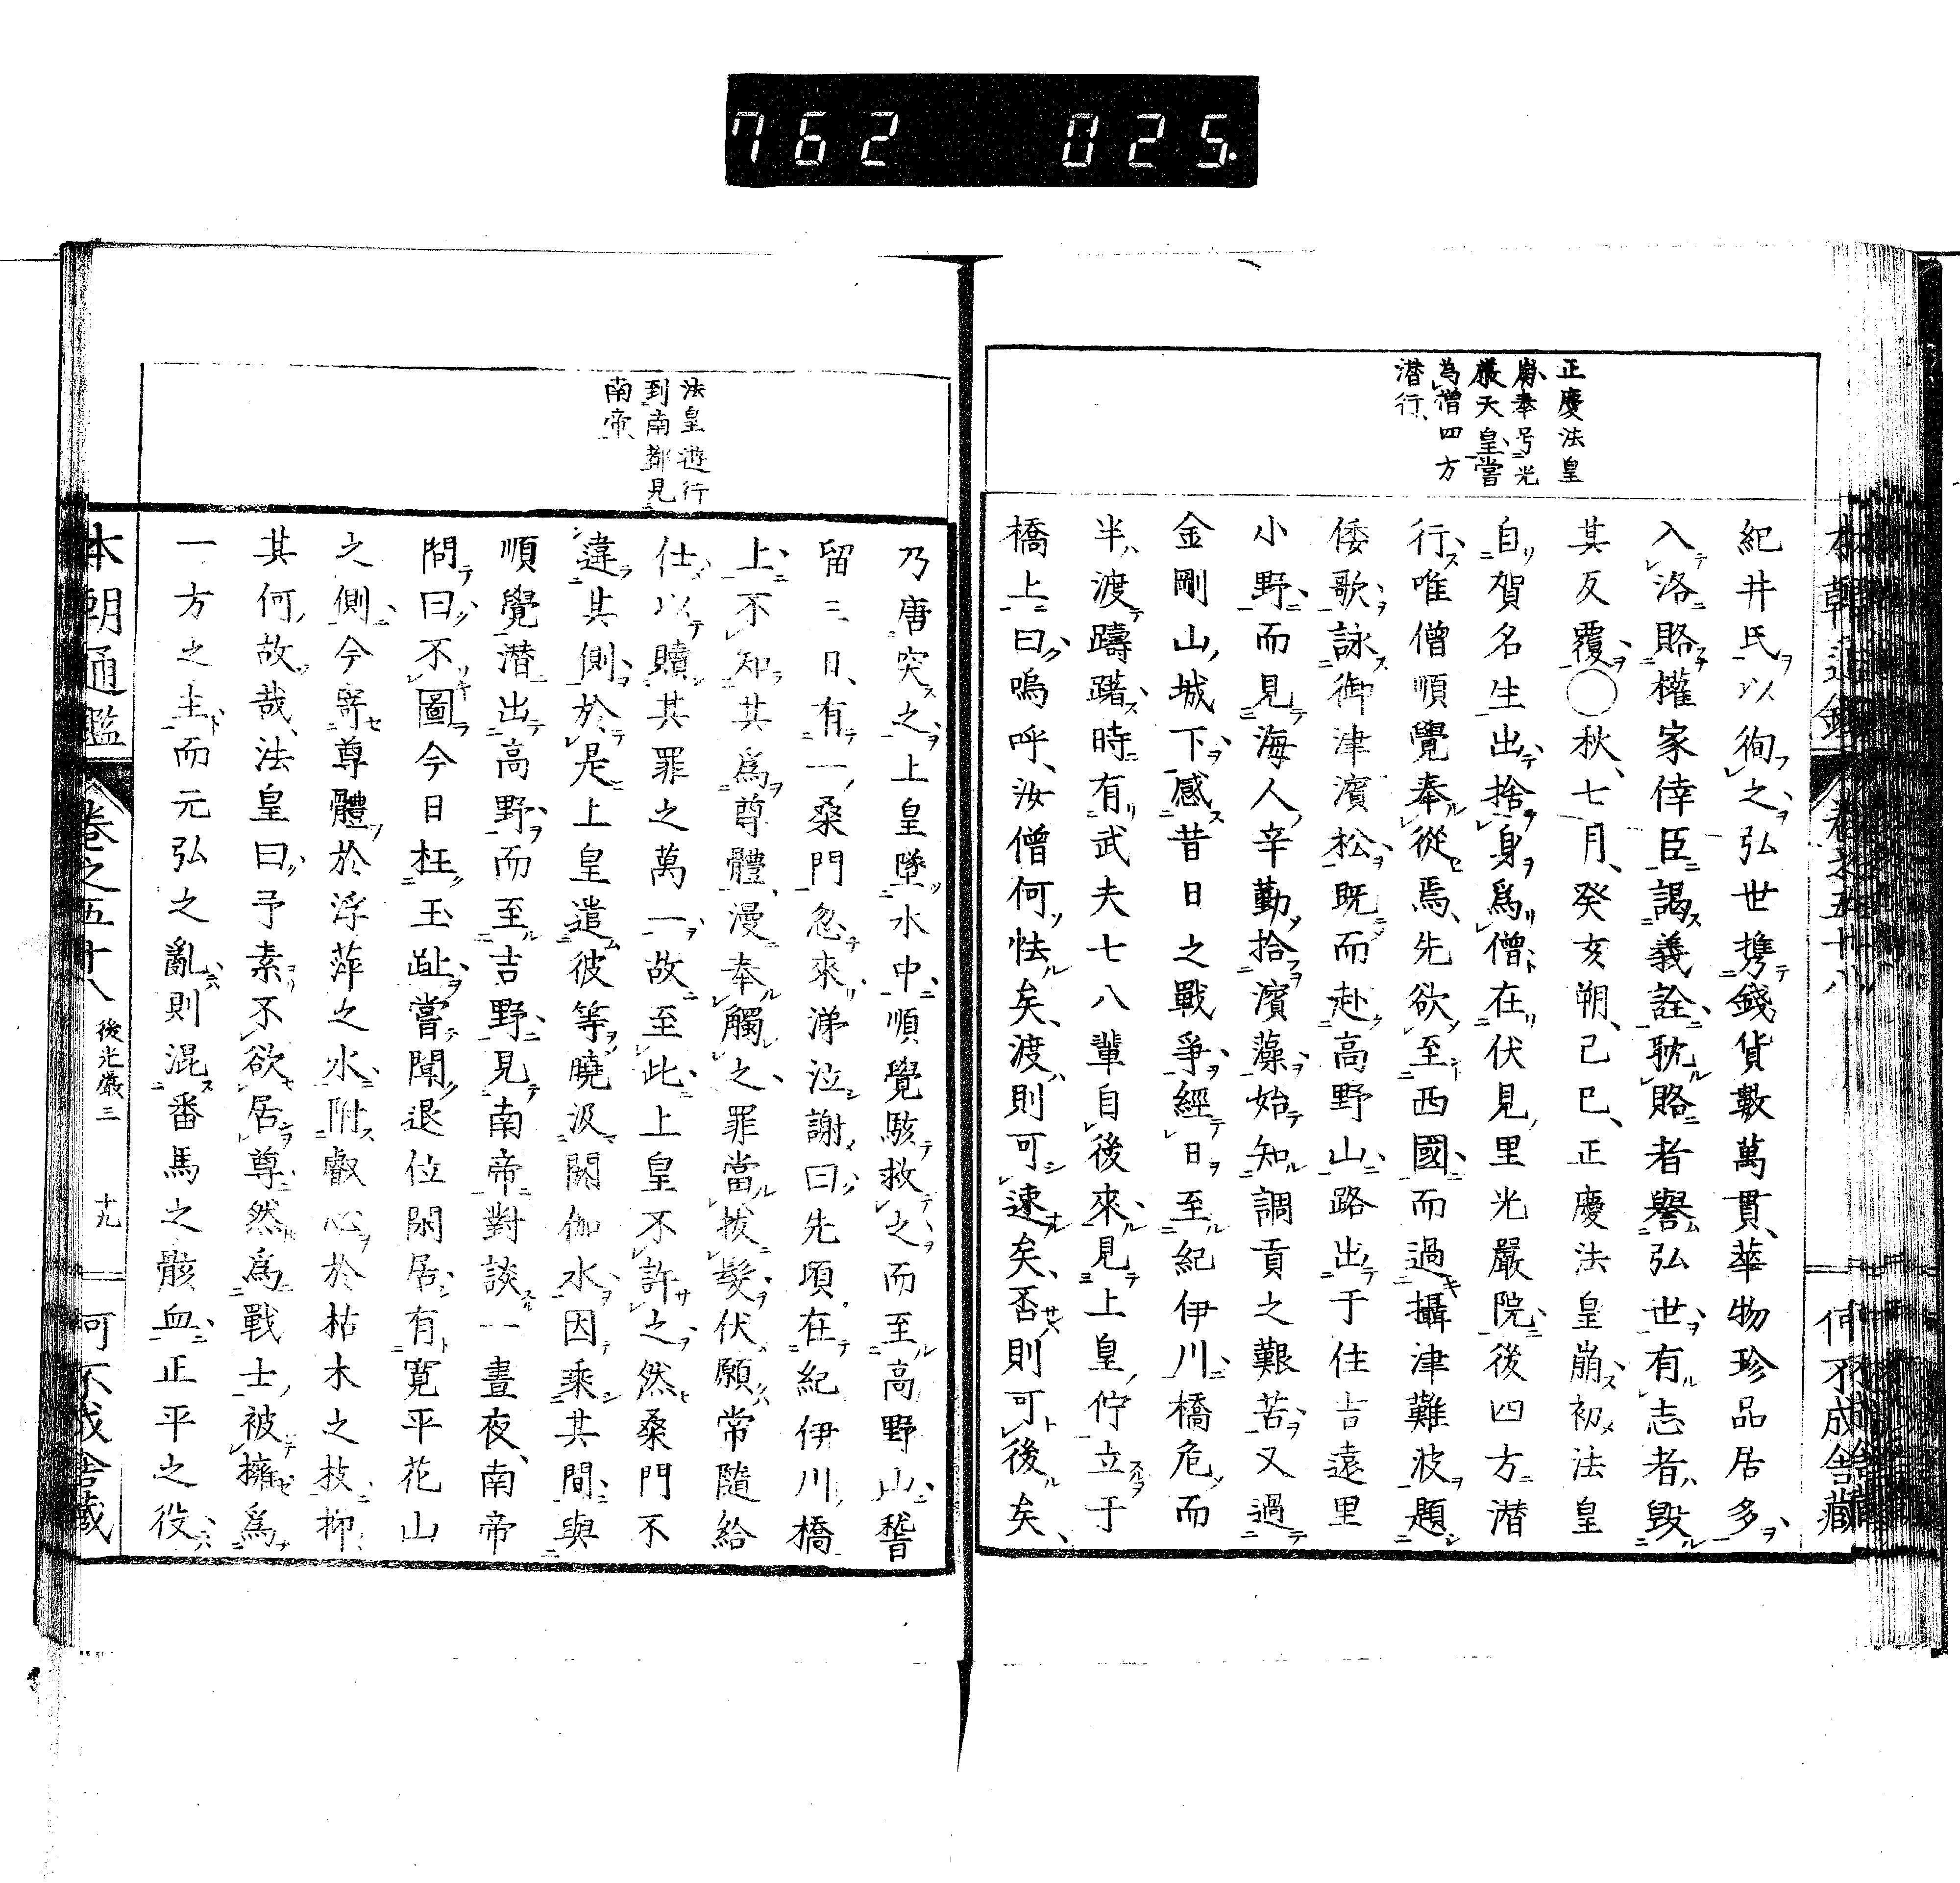 762 025.
正慶法皇
崩奉号光
嚴天皇嘗
為僧四方
潜行
紀井氏以徇之弘世携錢貨數萬貫華物珍品居多
入洛賂權家倖臣謁義詮耽賂者譽弘世有志者毀
其反覆○秋七月癸亥朔己巳正慶法皇崩初法皇
自賀名生出捨身爲僧在伏見里光嚴院後四方潜
行唯僧順覺奉從焉先欲至西國而過攝津難波題
倭歌詠御津濱松既而赴高野山路出于住吉遠里
小野而見海人辛勤拾濱藻始知調貢之艱苦又過
金剛山城下感昔日之戰爭經日至紀伊川橋危而
半渡躊躇時有武夫七八輩自後來見上皇佇立于
橋上曰嗚呼汝僧何怯矣渡則可速矣否則可後矣
本朝通鑑 卷之五十八 何不成舎藏
法皇遊行
到南都見
南帝
乃唐突之上皇墜水中順覺駭救之而至高野山暫
留三日有一桑門忽來涕泣謝曰先頃在紀伊川橋
上不知其爲尊體漫奉觸之罪當拔髮伏願常隨給
仕以贖其罪之萬一故至此上皇不許之然桑門不
違其側於是上皇遣彼等曉汲閼伽水因乘其間與
順覺潜出高野而至吉野見南帝對談一晝夜南帝
問曰不圖今日枉玉趾嘗聞退位閑居有寛平花山
之側今寄尊體於浮萍之水附叡心於枯木之枝抑
其何故哉法皇曰予素不欲居尊然爲戰士被擁爲
一方之主而元弘之亂則混番馬之骸血正平之役
本朝通鑑 卷之五十八 後光嚴三 十九 何不成舎藏